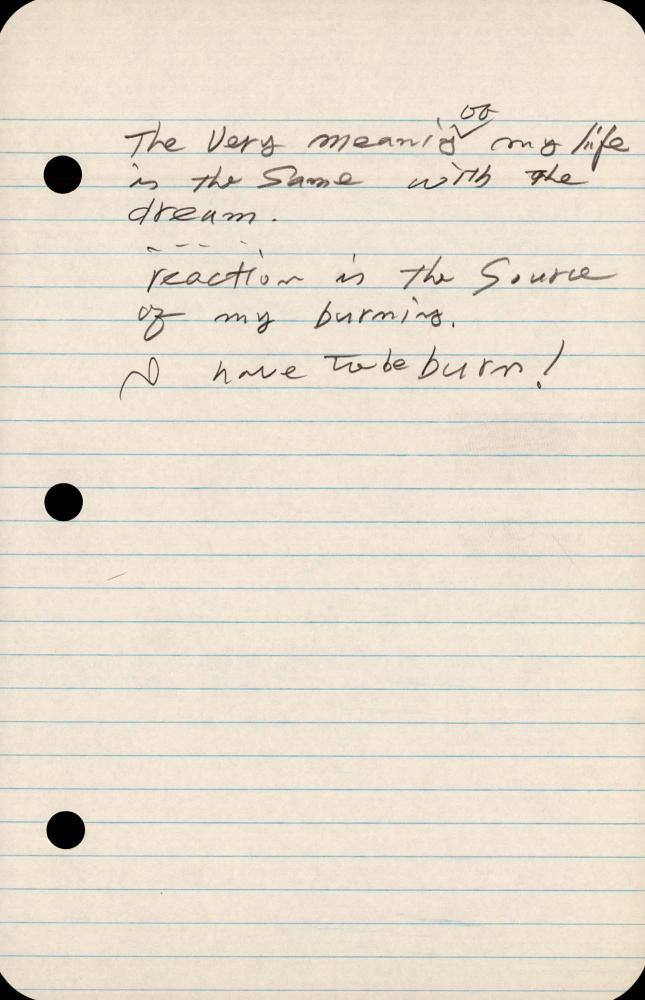 The Very meanig of my life
is the Same with the
dream.
- - - -
reaction is the Source
of my burning.
I have to be burn!